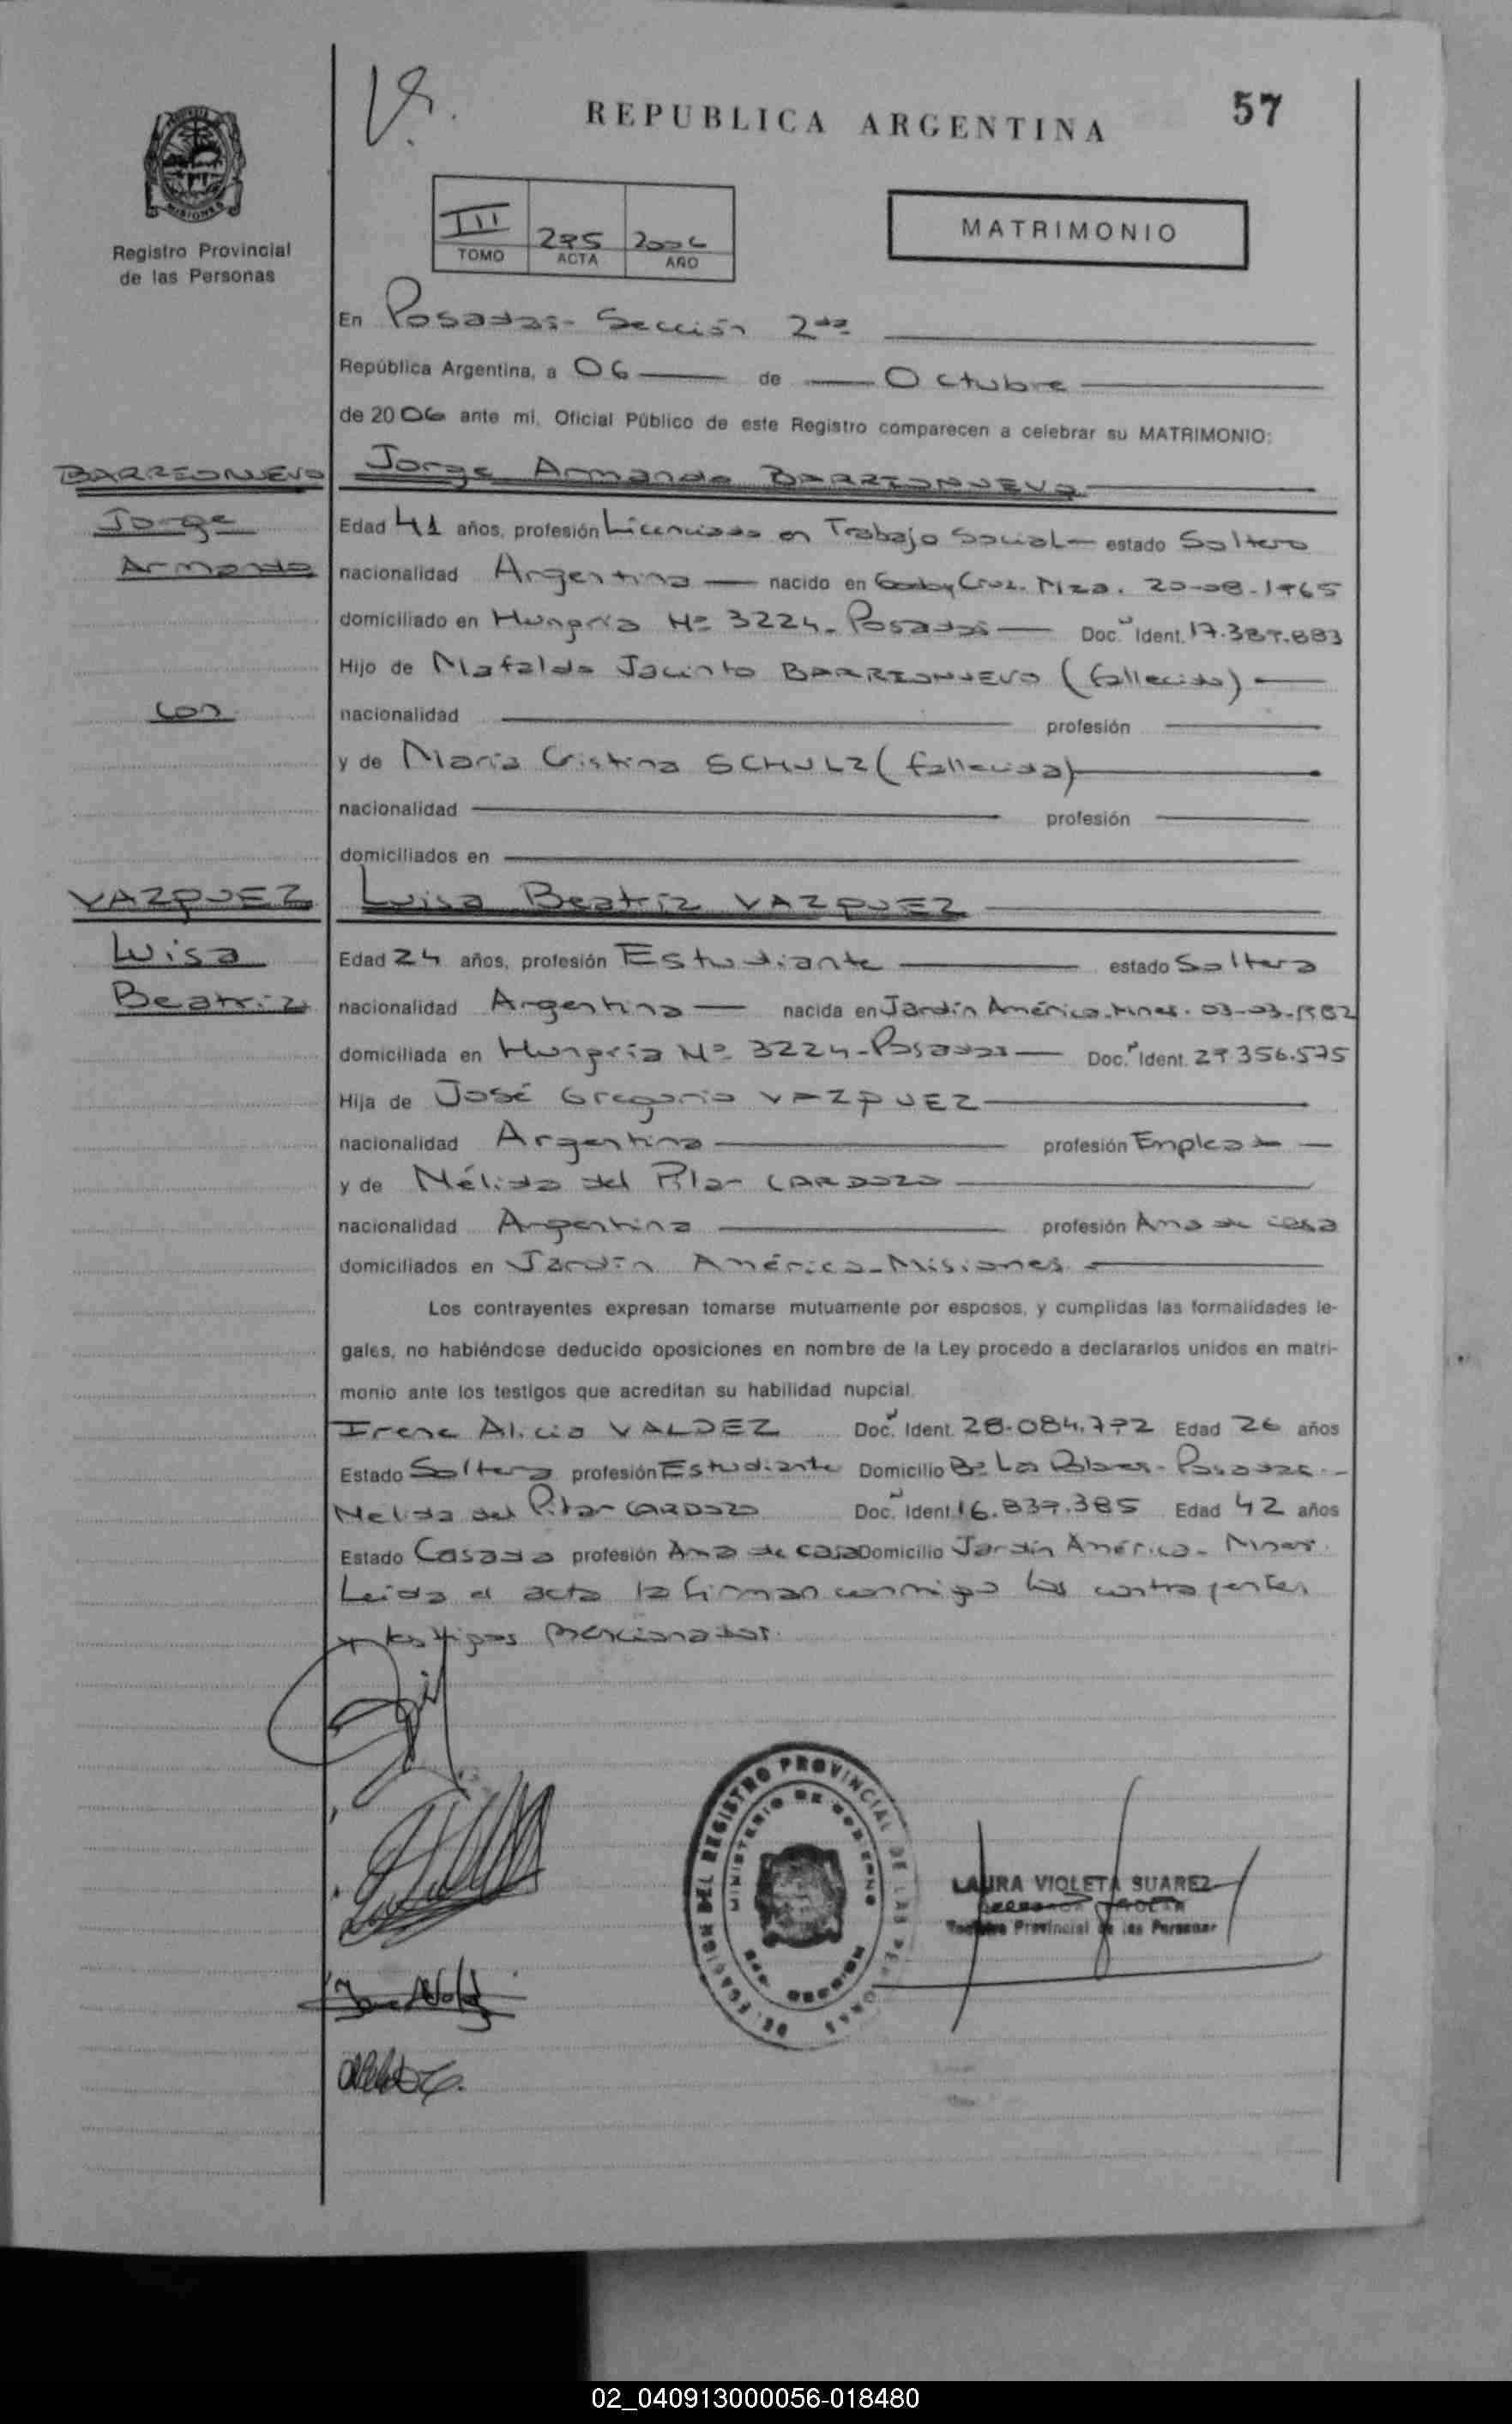 57
REPUBLICA ARGENTINA
MISIONES
Registro Provincial
de las Personas
III 295 2006
TOMO ACTA AÑO
MATRIMONIO
En Posadas- Sección 2da
República Argentina, a 06 de Octubre
de 2006 ante mi, Oficial Público de este Registro comparecen a celebrar su MATRIMONIO:
BARRIONUEVO
Jorge
Armando
con
VAZQUEZ
Luisa
Beatriz
Jorge Armando BARRIONUEVO
Edad 41 años, profesión Licenciado en Trabajo Social estado Soltero
nacionalidad Argentina nacido en Godoy Cruz. Mza. 20-08-1965
domiciliado en Hungría Nº 3224- Posadas Doc. Ident. 17.389.883
Hijo de Mafaldo Jacinto BARRIONUEVO (fallecido)
nacionalidad profesión
y de María Cristina SCHULZ (fallecida)
nacionalidad profesión
domiciliados en
Luisa Beatriz VAZQUEZ
Edad 24 años, profesión Estudiante estado Soltera
nacionalidad Argentina nacida en Jardín América-Mnes. 03-03-1982
domiciliada en Hungría Nº 3224-Posadas Doc. Ident. 29.356.575
Hija de José Gregorio VAZQUEZ
nacionalidad Argentina profesión Empleado
y de Nélida del Pilar CARDOZO
nacionalidad Argentina profesión Ama de casa
domiciliados en Jardín América-Misiones
Los contrayentes expresan tomarse mutuamente por esposos, y cumplidas las formalidades le-
gales, no habiéndose deducido oposiciones en nombre de la Ley procedo a declararlos unidos en matri-
monio ante los testigos que acreditan su habilidad nupcial.
Irene Alicia VALDEZ Doc. Ident. 28.084.792 Edad 26 años
Estado Soltera profesión Estudiante Domicilio Bº Los Posadas
Nelida del Pilar CARDOZO Doc. Ident. 16.837.385 Edad 42 años
Estado Casada profesión Ama de casa Domicilio Jardín América- Mnes.
Leida el acta la firman conmigo los contrayentes
y testigos mencionados.
DELEGACION DEL REGISTRO PROVINCIAL DE LAS PERSONAS
MINISTERIO DE GOBIERNO
MISIONES
LAURA VIOLETA SUAREZ
Registro Provincial de las Personas
02_040913000056-018480